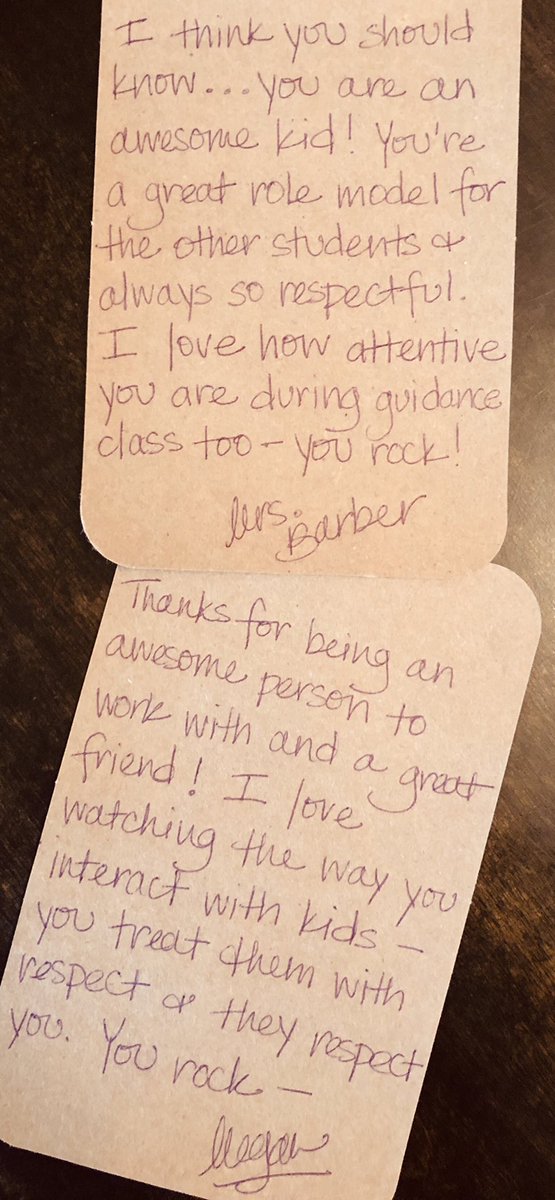 I think you should
know...you are an
awesome kid! You're
a great role model for
the other students &
always so respectful.
I love how attentive
you are during guidance
class too - you rock!
Mrs. Barber
Thanks for being an
awesome person to
work with and a great
friend! I love
watching the way you
interact with kids -
you treat them with
respect & they respect
you. You rock -
Megan